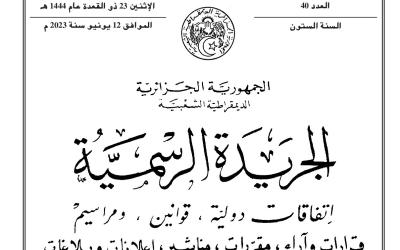 العدد 40
الإثنين 23 ذو القعدة عام 1444 هـ
السنة الستون
الموافق 12 يونيو سنة 2023 م
الجمهورية الجزائرية
الديمقراطية الشعبية
الجريدة الرسمية
إتفاقات دولية ، قوانين ، ومراسيم
قرارات وآراء ، مقررات ، مناشير ، إعلانات وبلاغات